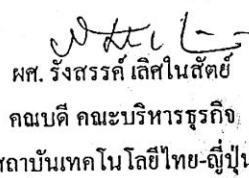 ผศ. รังสรรค์ เลิศในสัตย์
คณบดี คณะบริหารธุรกิจ
สถาบันเทคโนโลยีไทย-ญี่ปุ่น